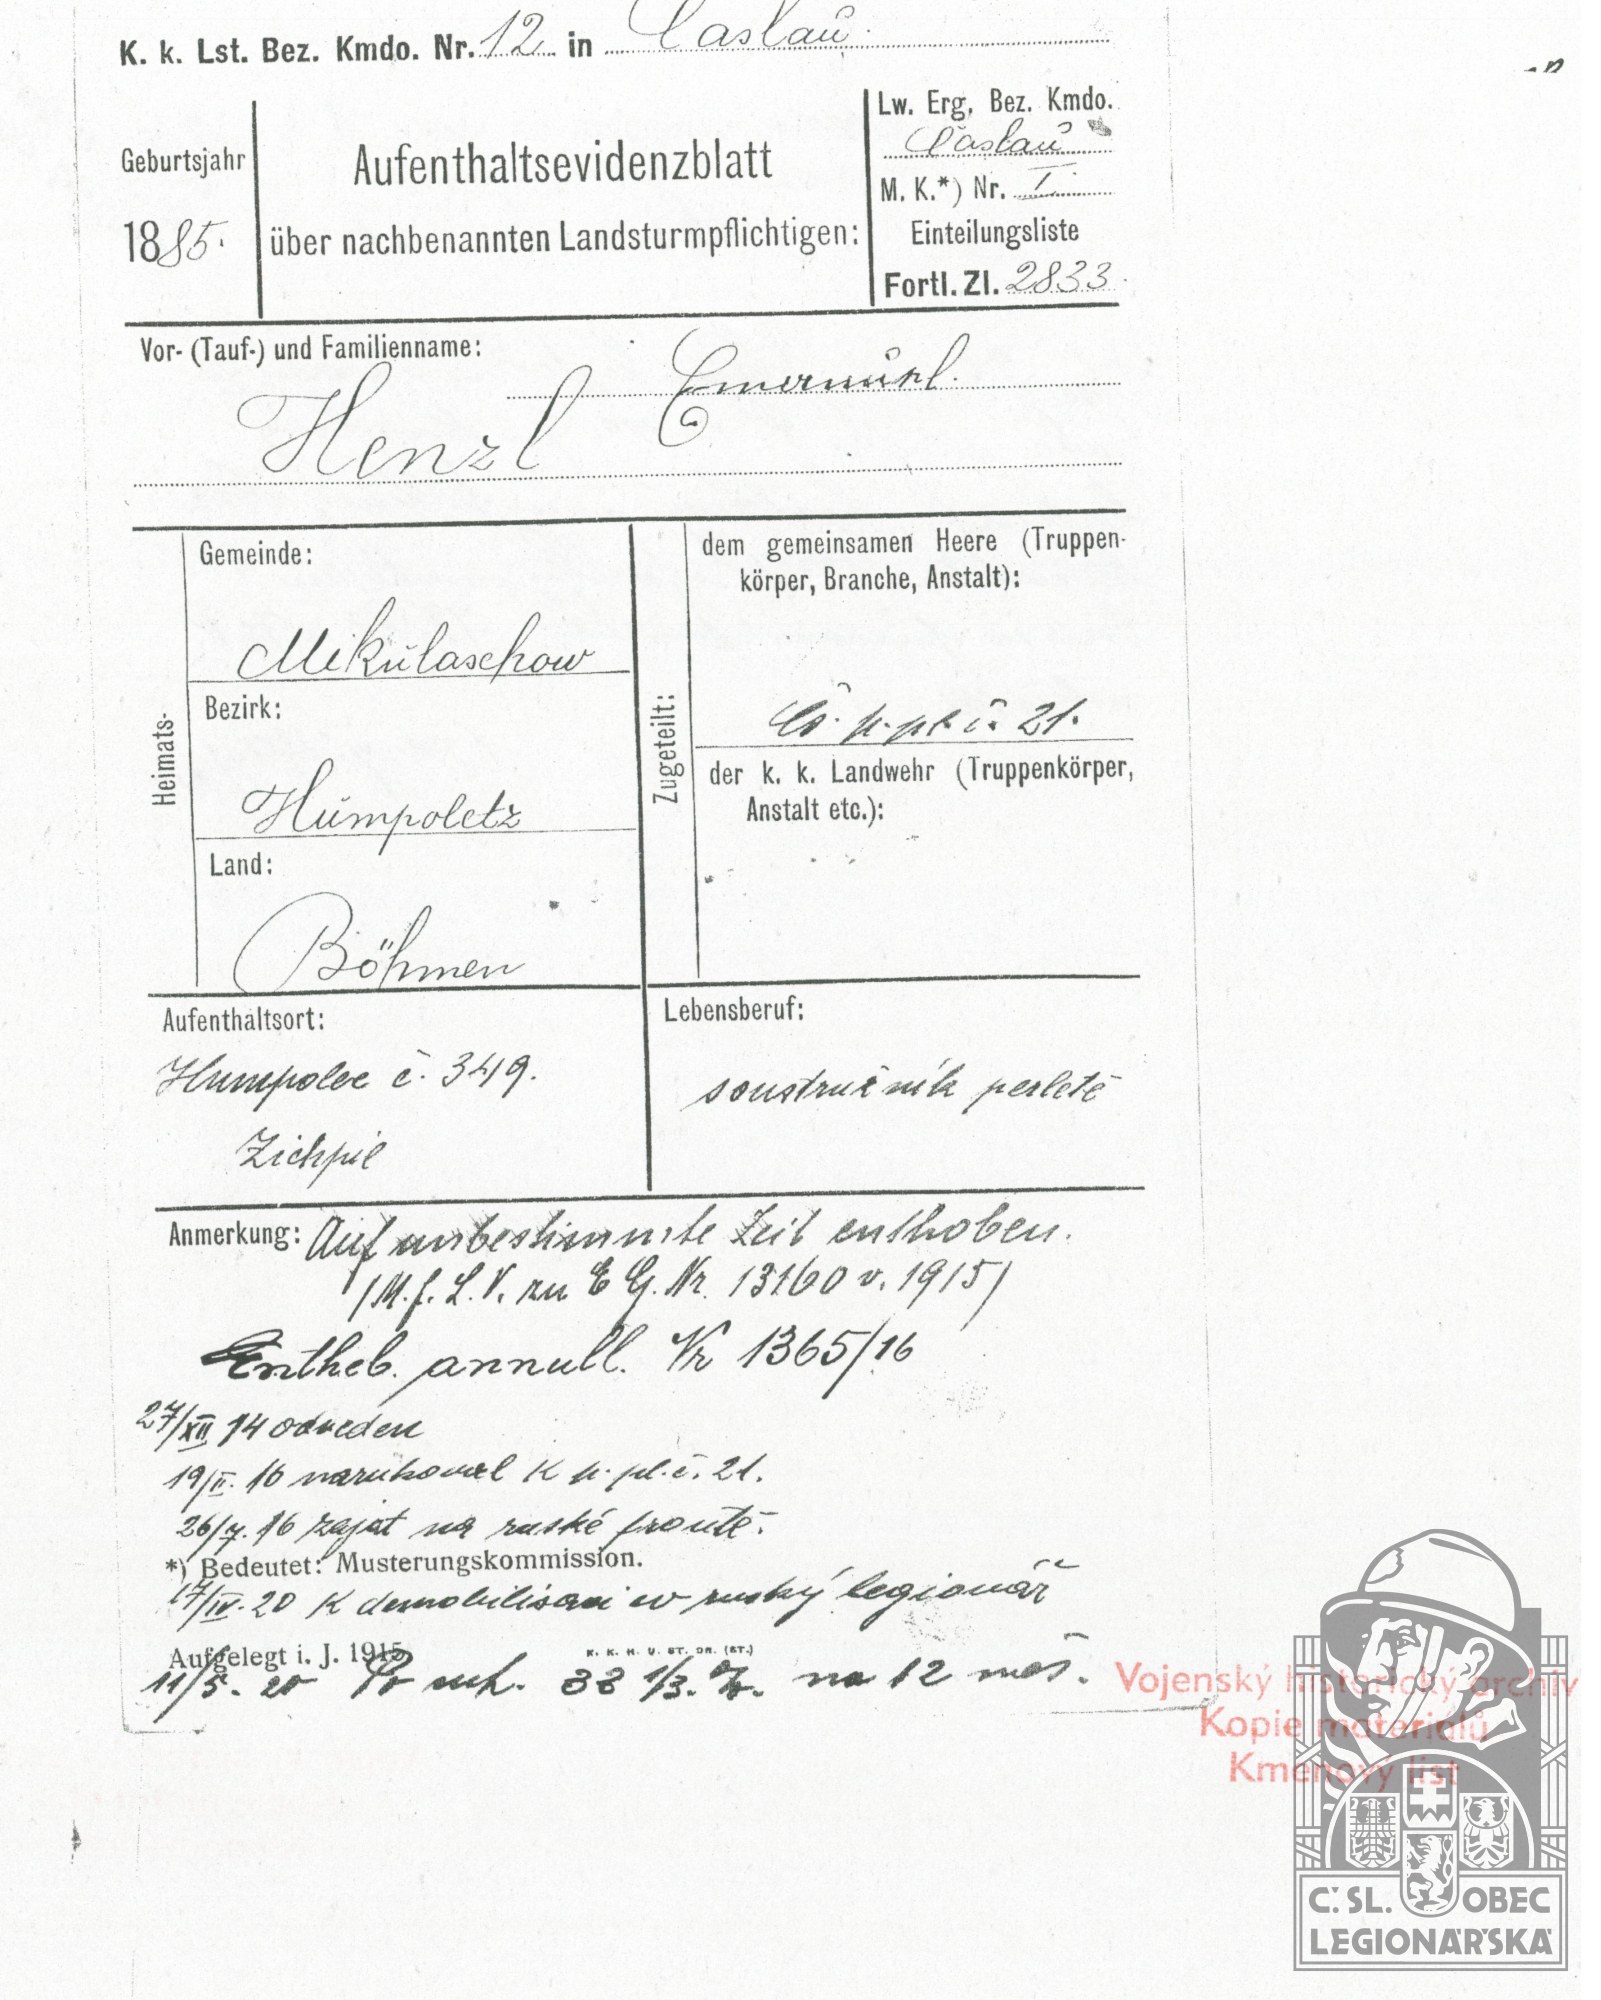 K. k. Lst. Bez. Kmdo. Nr. 12 in Caslau
Lw. Erg. Bez. Kmdo.
Caslau
M. K.*) Nr. I.
Einteilungsliste
Fortl. Zl. 2833
Geburtsjahr
1885.
Aufenthaltsevidenzblatt
über nachbenannten Landsturmpflichtigen:
Vor- (Tauf-) und Familienname:
Emanuel.
Henzl
Heimats-
Gemeinde:
Mikulaschow
Bezirk:
Humpoletz
Land:
Böhmen
Zugeteilt:
dem gemeinsamen Heere (Truppen-
körper, Branche, Anstalt):
Čs. p. pl. č. 21.
der k. k. Landwehr (Truppenkörper,
Anstalt etc.):
Aufenthaltsort:
Humpolec č. 349.
Zichpil
Lebensberuf:
soustružník perletě
Anmerkung: Auf unbestimmte Zeit enthoben.
/M. f. L. V. zu E G. Nr. 13160 v. 1915/
Entheb. annull. Nr 1365/16
27/XII 14 odveden
19/II. 16 narukoval k p. pl. č. 21.
26/7. 16 zajat na ruské frontě.
*) Bedeutet: Musterungskommission.
17/IV. 20 k demobilisaci co ruský legionář
Aufgelegt i. J. 1915.
K. K. H. U. ST. DR. (ST.)
11/5. 20 na 12 měs.
Vojenský historický archiv
Kopie materiálů
Kmenový list
Č. SL. OBEC
LEGIONÁŘSKÁ